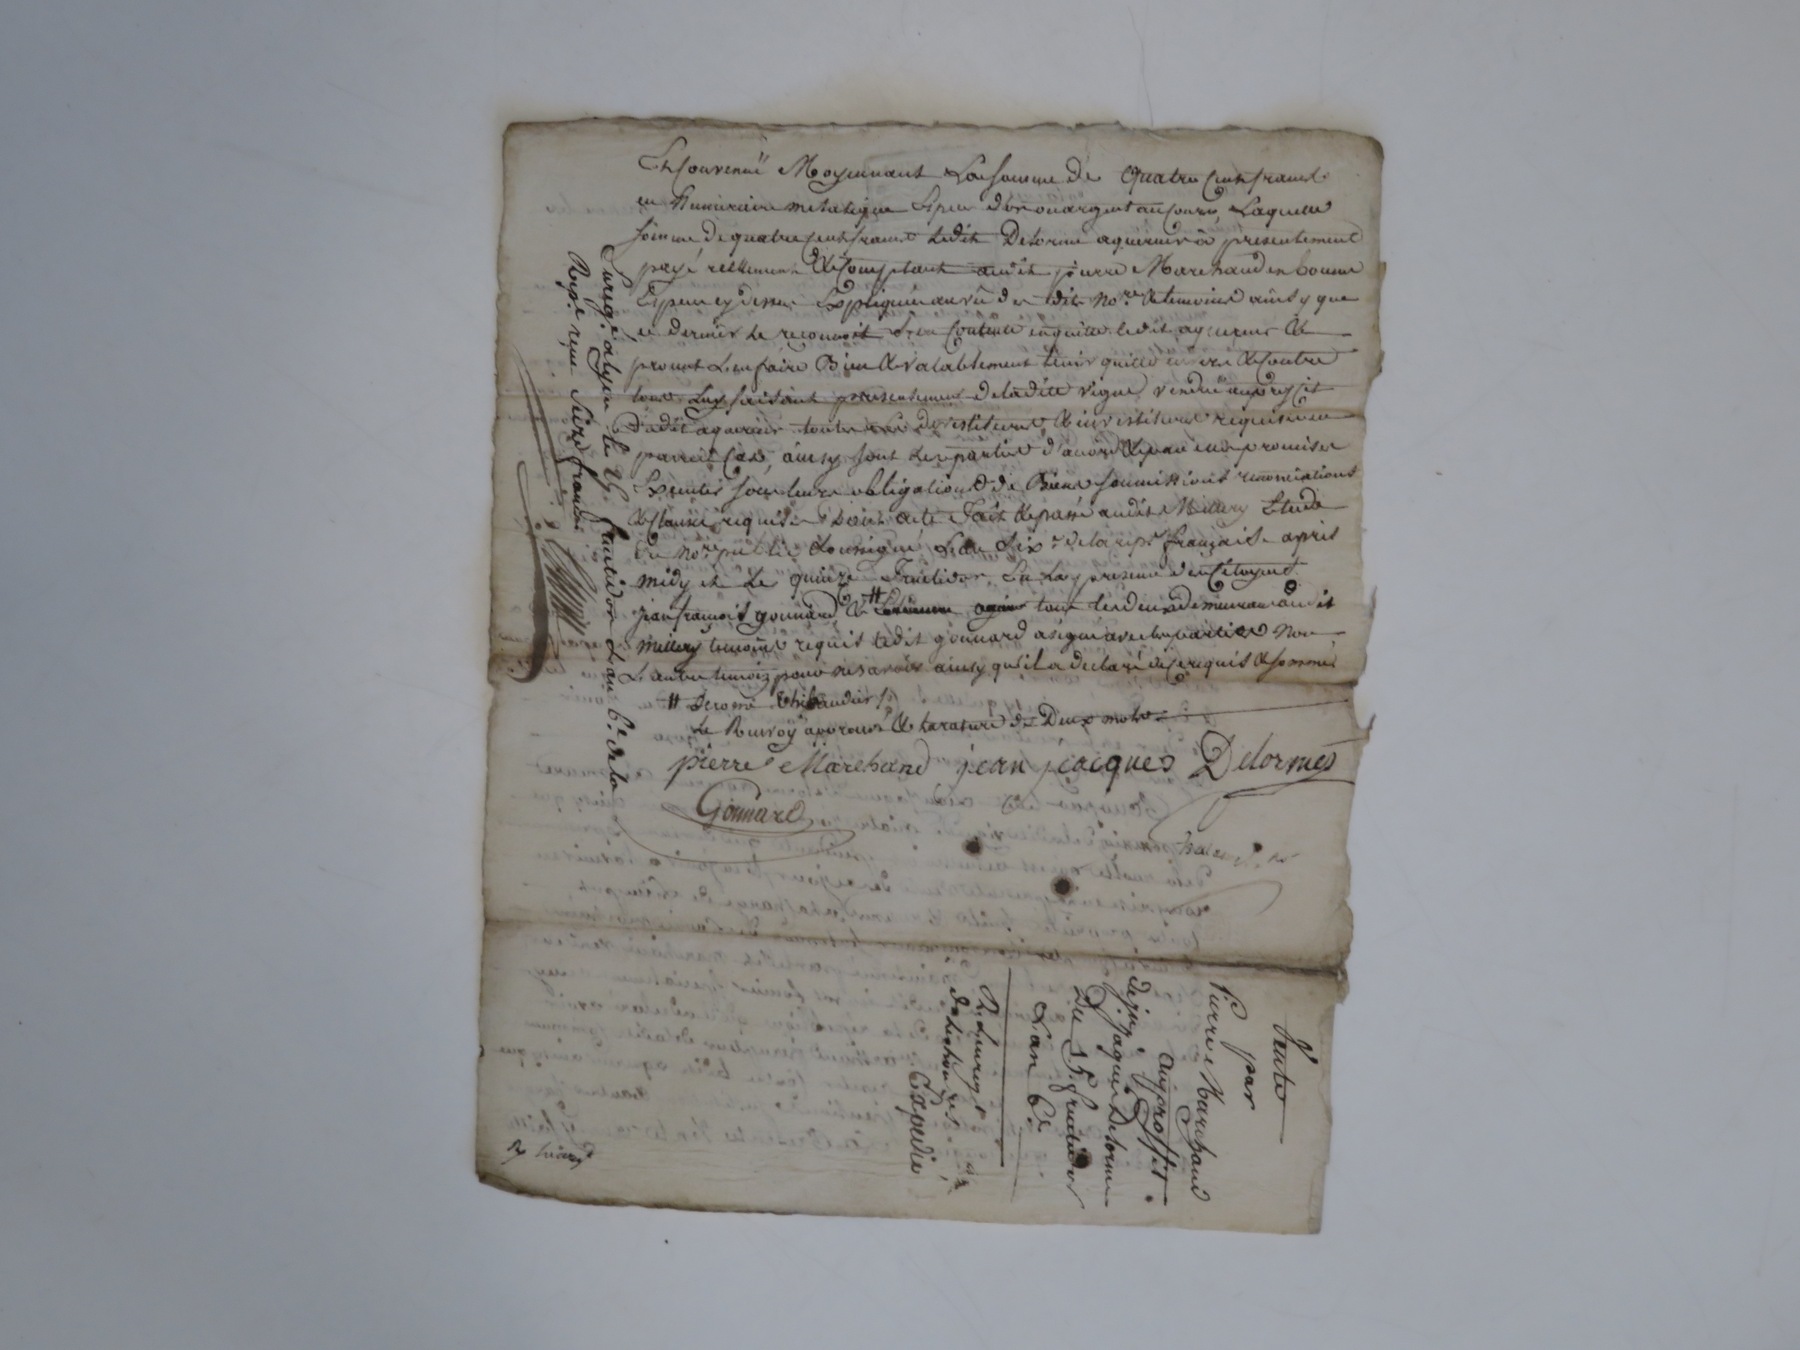 et souvenir Moyennant La somme de quatre cent francs
en Numeraire metalique Espece d'or ou argent au cours, Laquelle
somme de quatre cent francs Ledit Delorme aquereur à presentement
payé réellement & comptant audit pierre Marchand en bonne
Espece cy dessus Expliquée au vû des dits No.re & temoins ainsy que
ce dernier le reconnoit s'en contente en quitte ledit aquereur &
promet L'en faire Bien & valablement tenir quitte envers & contre
tous Luy faisant presentement de ladite vigne vendue au proffit
dudit aquereur toutes Les devestitures & investitures requises en
pareil Cas, ainsy sont Les parties d'accord & par eux promises
Executer sous leurs obligations de Biens soumissions renonciations
& clauses requises Dont acte Fait & passé audit Millery Etude
du No.re public soussigné L'an six.e de la rep.e française après
midy et Le quinze Fructidor En La presence des Citoyens
jean francois gonnard, & # tous les deux demeurant audit
Millery temoins requis ledit gonnard a signé avec les parties Non
L'autre temoin pour ne savoir ainsy qu'il a déclaré de ce requis & sommé
# Jerome Thibaudier
Le Renvoy approuvé & la rature de Deux mots
pierre Marchand jean jacques Delorme
Gonnard
Enregé. à Lyon le fructidor L'an 6.e de la
Rep.e reçu Seize francs
Vente
par
Pierre Marchand
au proffit
de jn. jaques Delorme
Du 15. fructidor
L'an 6e
Expedié